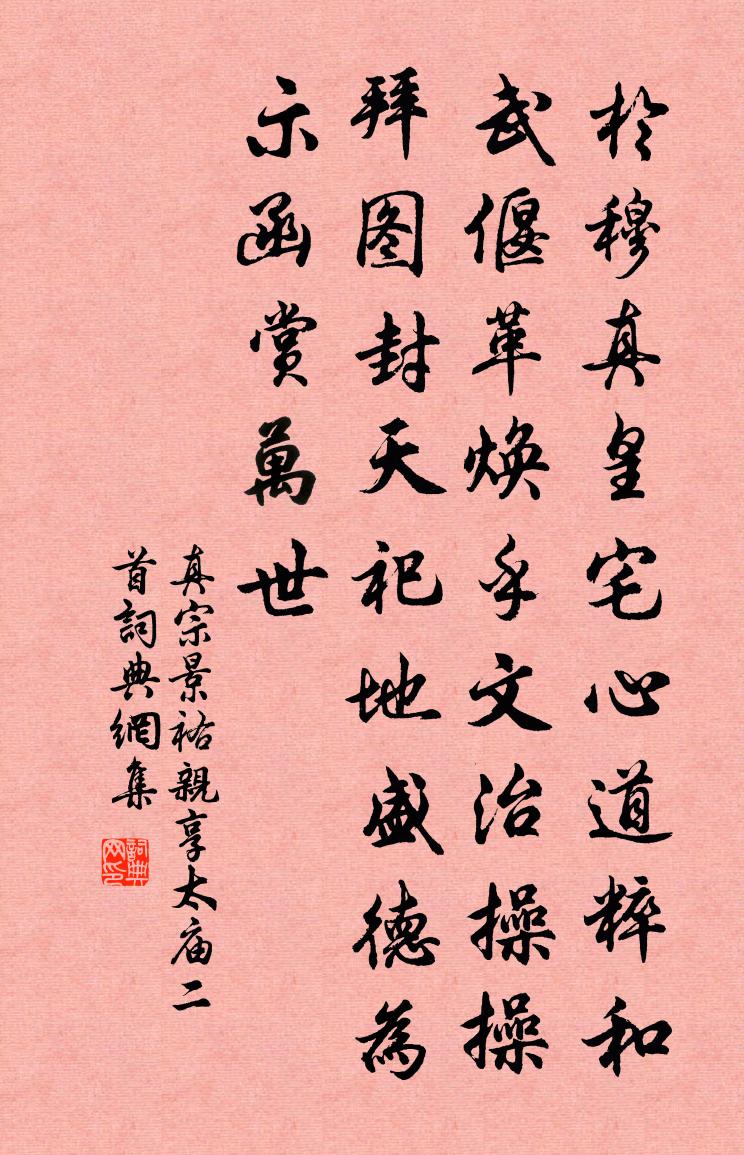 於穆真皇宅心道粹和
武偃革焕乎文治操操
拜图封天祀地盛德為
示函赏萬世
真宗景祐親享太庙二
首詞典網集
詞典网印